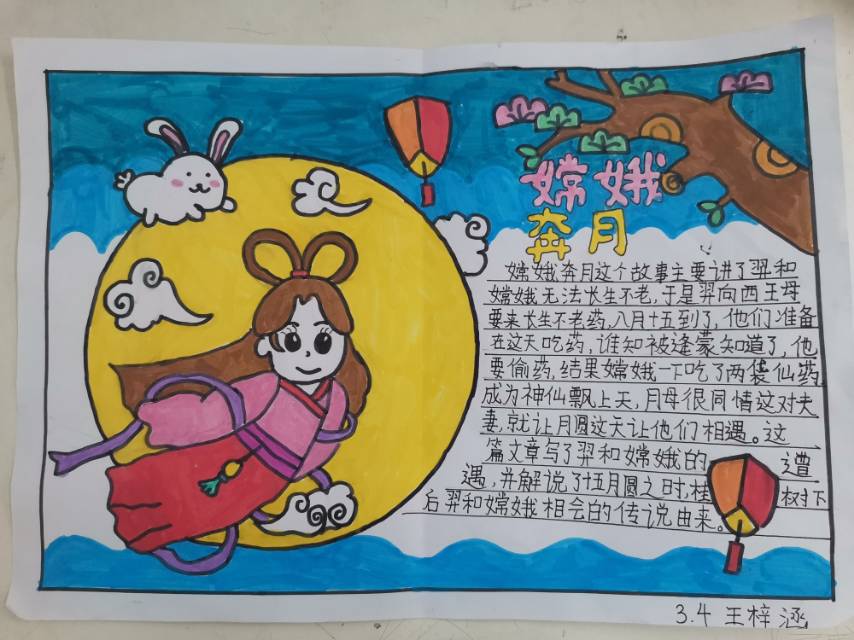 嫦娥
奔月
嫦娥奔月这个故事主要讲了羿和
嫦娥无法长生不老,于是羿向西王母
要来长生不老药,八月十五到了,他们准备
在这天吃药,谁知被逢蒙知道了,他
要偷药,结果嫦娥一下吃了两袋仙药
成为神仙飘上天,月母很同情这对夫
妻,就让月圆这天让他们相遇。这
篇文章写了羿和嫦娥的 遭
遇,并解说了十五月圆之时,桂 树下
后羿和嫦娥相会的传说由来。
3.4 王梓涵